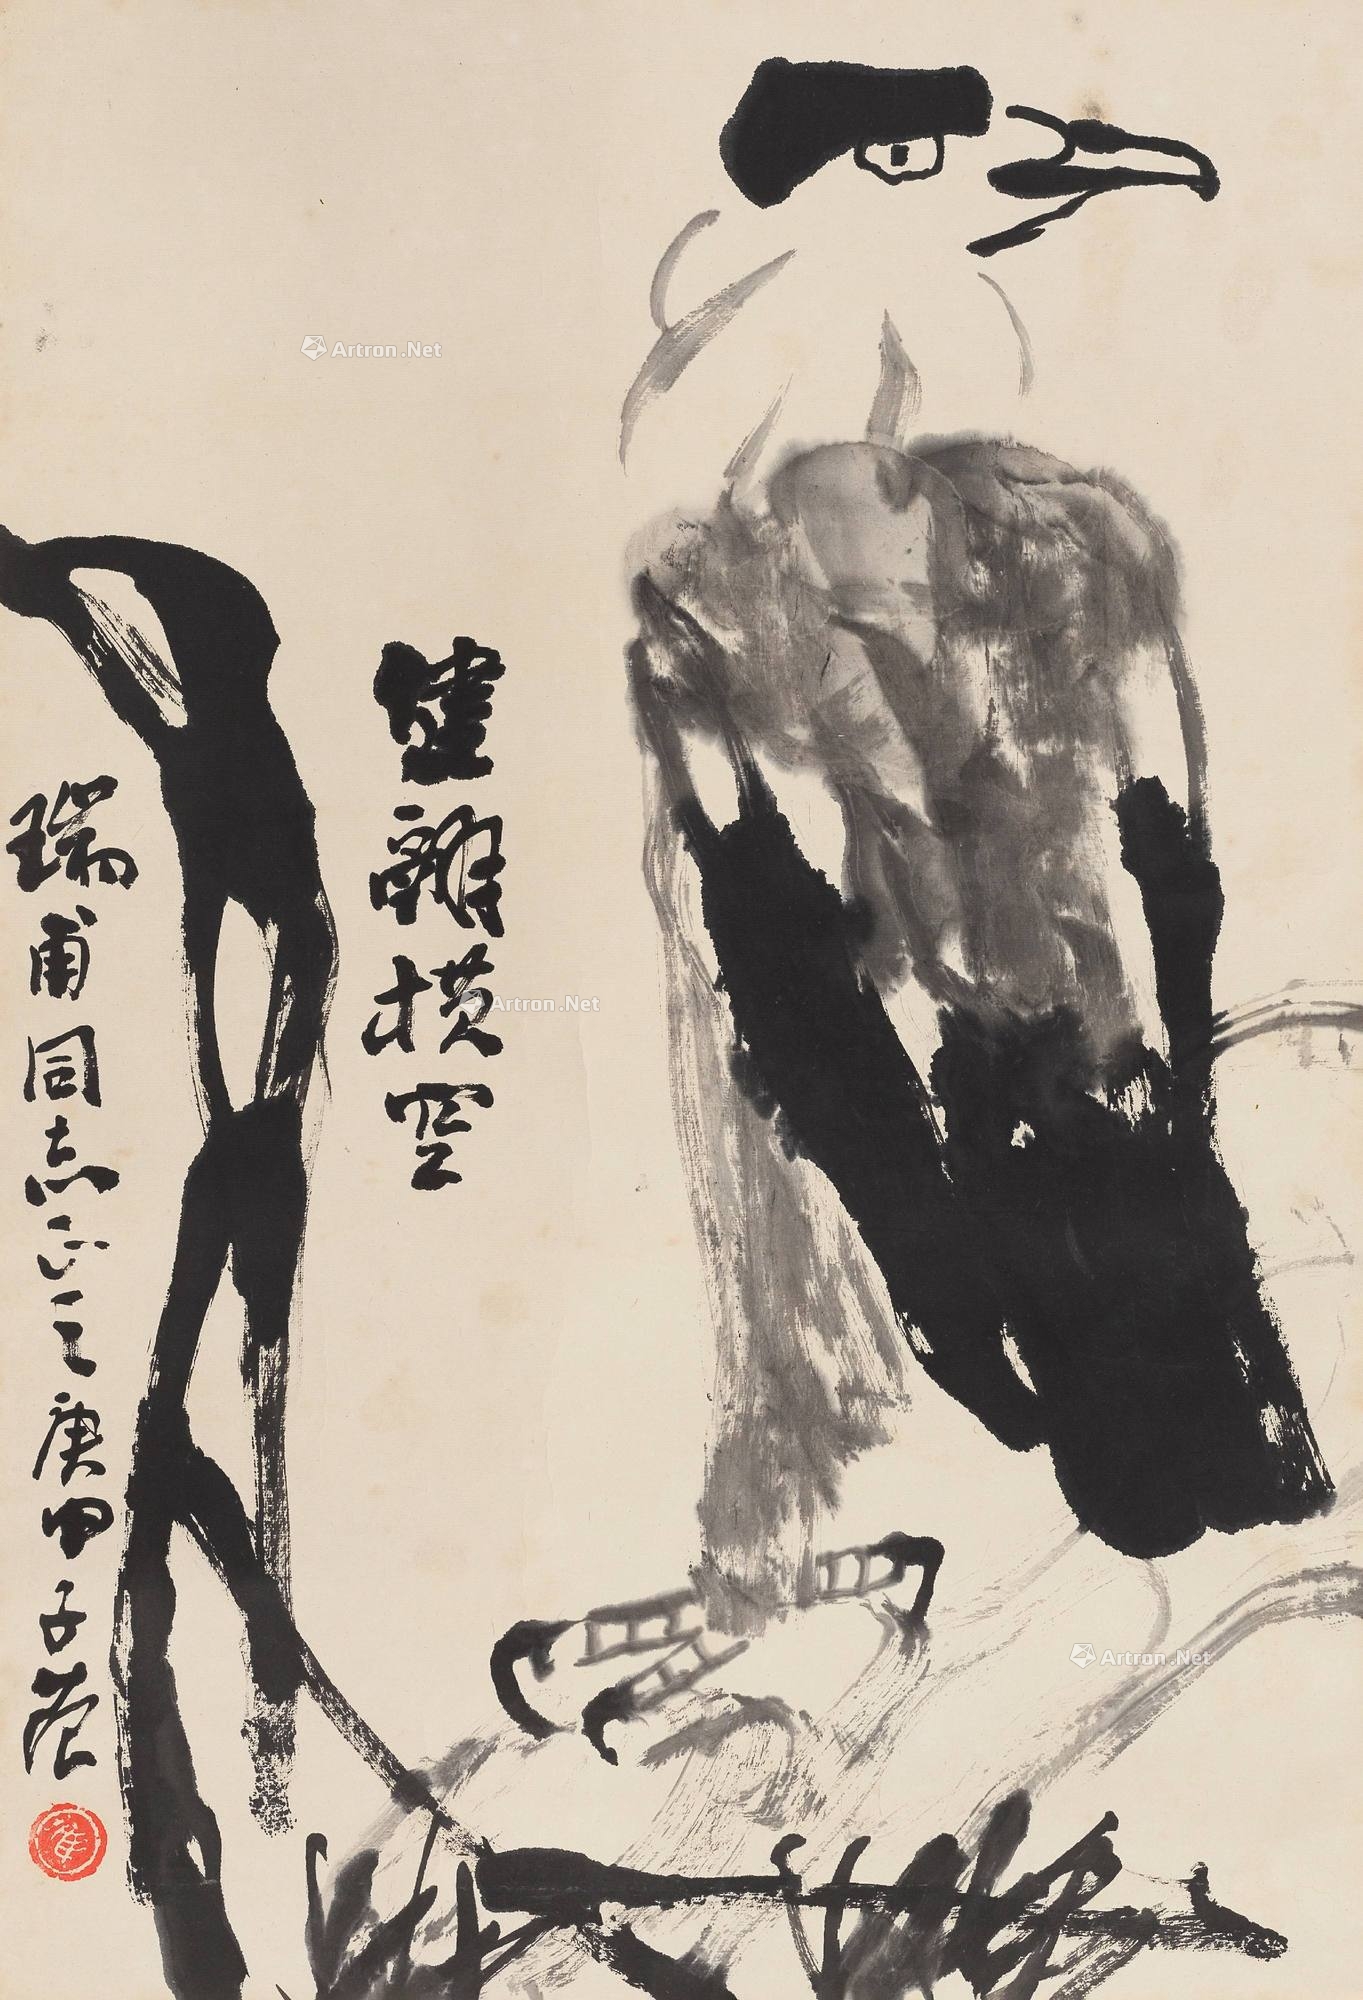 健翮横空
瑞甫同志正之庚申子范
崔
Artron.Net
Artron.Net
Artron.Net